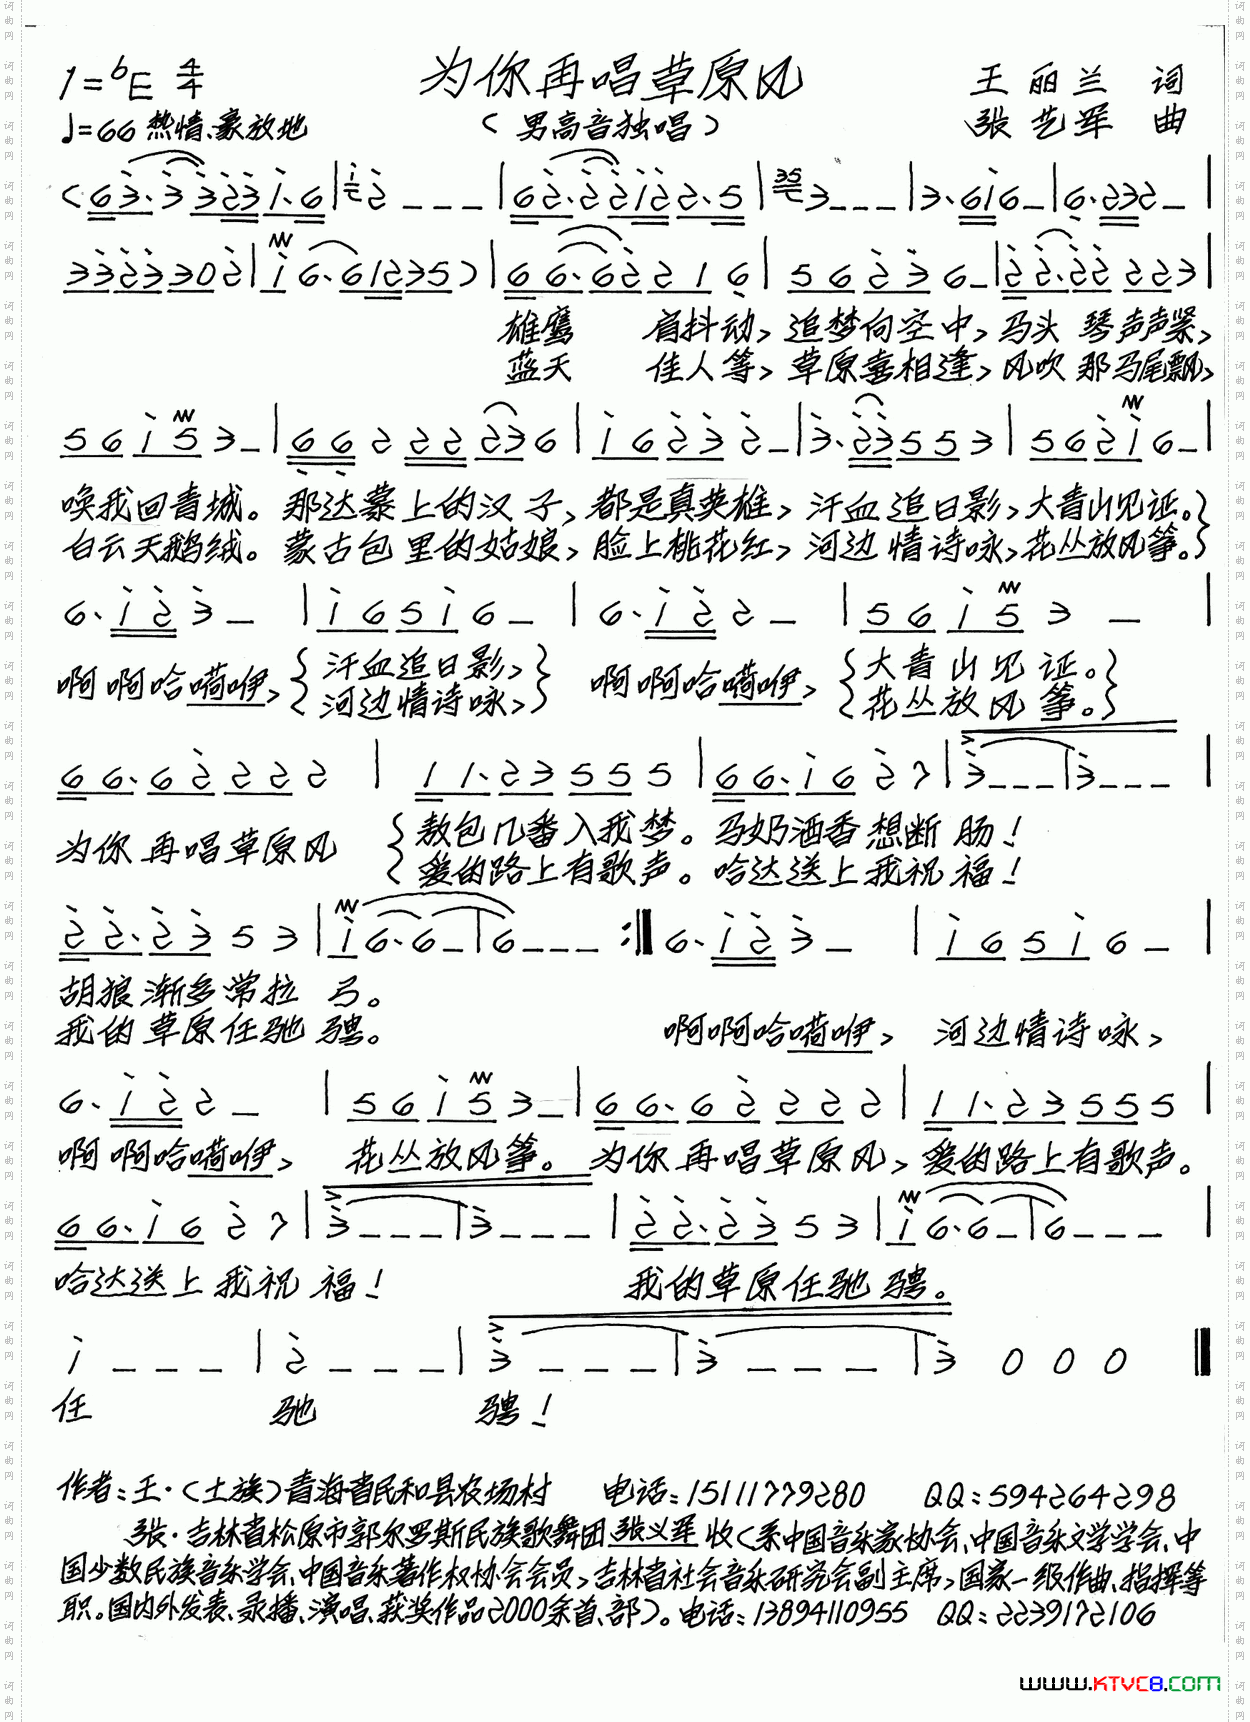 为你再唱草原风
1=♭E 4/4
王丽兰 词
♩=66 热情、豪放地
（男高音独唱）
张艺军 曲
雄鹰 肩抖动, 追梦向空中, 马头 琴声声紧,
蓝天 佳人等, 草原喜相逢, 风吹 那马尾飘,
唤我回青城。那达慕上的汉子, 都是真英雄, 汗血追日影, 大青山见证。
白云天鹅绒。蒙古包里的姑娘, 脸上桃花红, 河边情诗咏, 花丛放风筝。
啊啊哈嗬咿, 汗血追日影, 啊啊哈嗬咿, 大青山见证。
河边情诗咏, 花丛放风筝。
为你再唱草原风 敖包几番入我梦。马奶酒香想断肠！
爱的路上有歌声。哈达送上我祝福！
胡狼渐多常拉弓。
我的草原任驰骋。 啊啊哈嗬咿, 河边情诗咏,
啊啊哈嗬咿, 花丛放风筝。为你再唱草原风, 爱的路上有歌声。
哈达送上我祝福！ 我的草原任驰骋。
任 驰 骋！
作者:王·（土族）青海省民和县农场村 电话:15111779280 QQ:594264298
张·吉林省松原市郭尔罗斯民族歌舞团张义军收（系中国音乐家协会、中国音乐文学学会、中
国少数民族音乐学会、中国音乐著作权协会会员, 吉林省社会音乐研究会副主席, 国家一级作曲、指挥等
职。国内外发表、录播、演唱、获奖作品2000余首、部）。电话:13894110955 QQ:2239172106
www.KTVC8.com